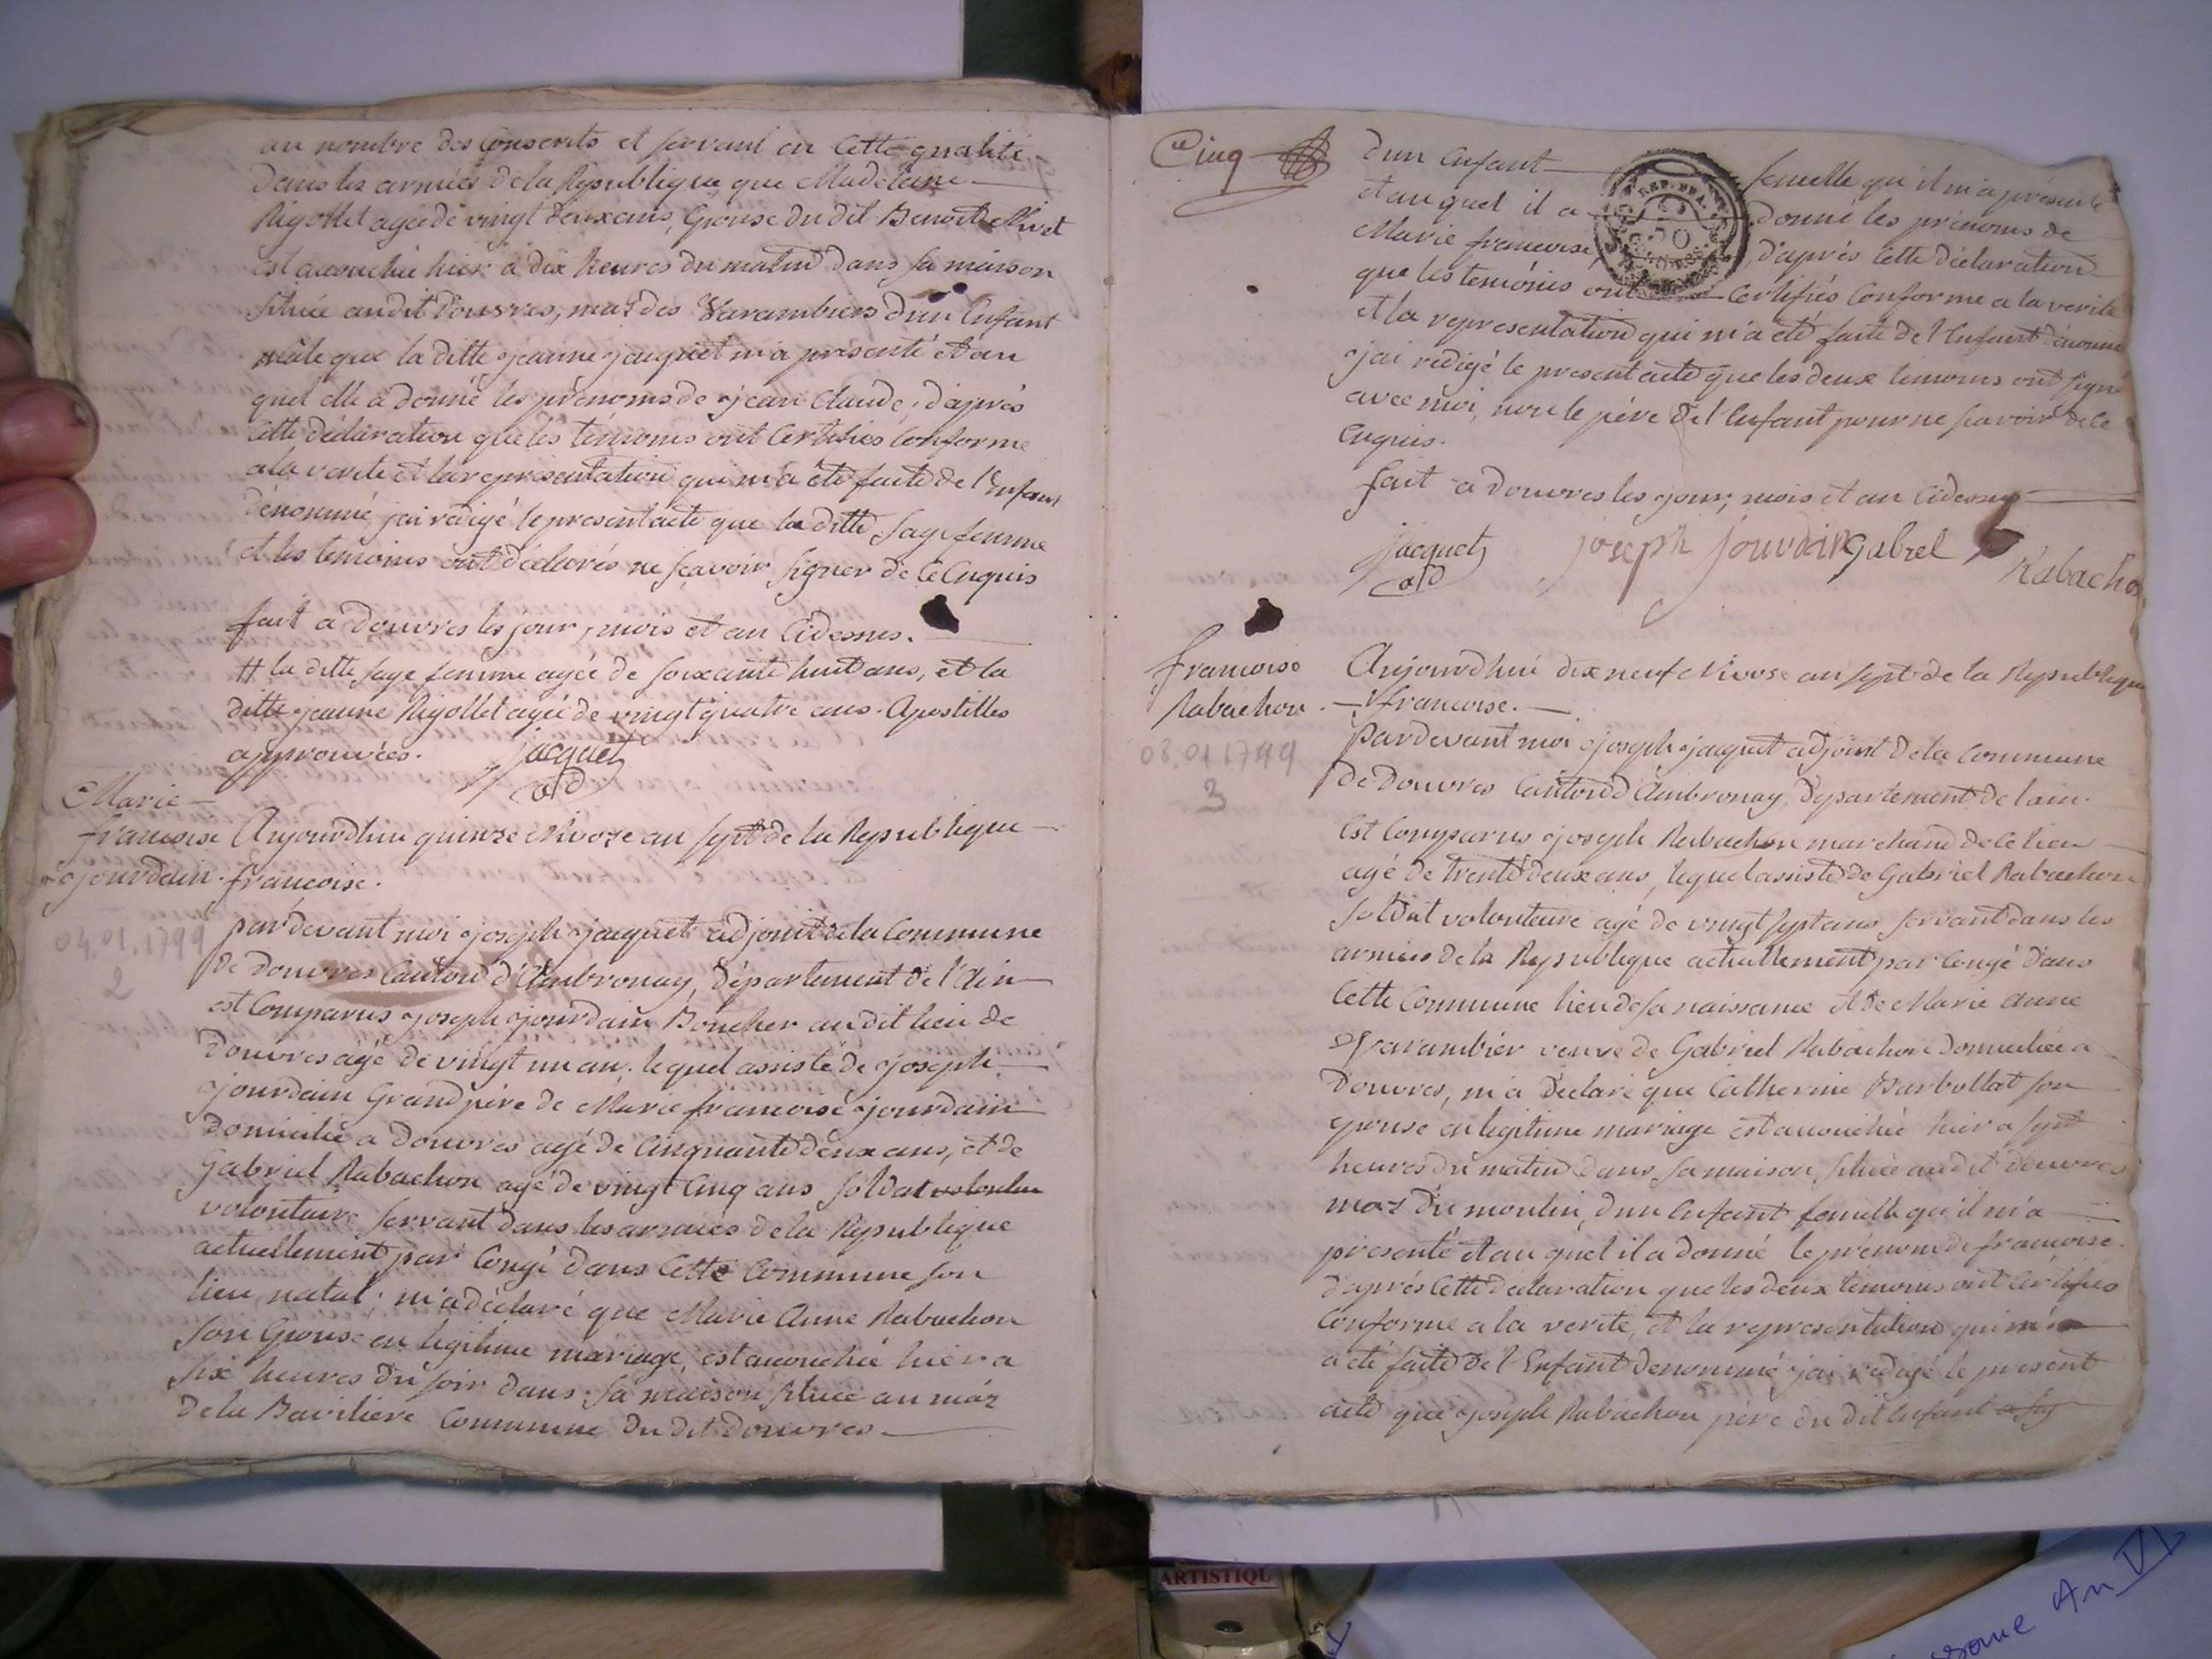 au nombre des Conscrits et servant en Cette qualité
dans les armées de la Republique, que Madelaine
Rigollet agée de vingt deux ans, Epouse du dit Benoit
est accouchée hier a dix heures du matin dans sa maison
située audit Douvres, maz des Varambiers d'un Enfant
mâle que la ditte jeanne jacquet m'a présenté et au
quel elle a donné les prénoms de jean Claude, d'après
Cette déclaration que les temoins ont Certifiés Conforme
a la verité et la representation qui m'a été faite de l'Enfant
dénommé, jai redigé le present acte que la ditte sage femme
et les temoins ont déclarés ne sçavoir signer de Ce Enquis
fait a Douvres les jour, mois et an Cidessus.
# la ditte sage femme agée de soixante huit ans, et la
ditte jeanne Rigollet agée de vingt quatre ans. Apostilles
approuvées. jacquet
adj
Marie
francoise
jourdain.
04.01.1799
2
Aujourdhui quinze Nivoze an sept de la Republique
francoise.
par devant moi joseph jacquet adjoint de la Commune
de Douvres Canton d'Ambronay, Département de l'Ain
est Comparus joseph jourdain Boucher audit lieu de
Douvres agé de vingt un an. lequel assisté de joseph
jourdain Grand père de Marie francoise jourdain
domicilié a Douvres agé de Cinquante deux ans, et de
Gabriel Rabachon agé de vingt Cinq ans soldat
volontaire servant dans les armées de la Republique
actuellement par Congé dans Cette Commune son
lieu natal. m'a déclaré que Marie Anne Rabachon
son Epouse en legitime mariage, est accouchée hier a
six heures du soir dans sa maison située au maz
de la Baviliere Commune du dit Douvres
Cinq
d'un Enfant femelle qu'il m'a présenté
et auquel il a donné les prénoms de
Marie francoise, d'après Cette déclaration
que les temoins ont Certifiés Conforme a la verité
et la representation qui m'a été faite de l'Enfant dénommé
jai redigé le present acte que les deux temoins ont signé
avec moi, non le père de l'Enfant pour ne sçavoir de Ce
Enquis.
fait a Douvres les jour, mois et an Cidessus
jacquet joseph jourdain gabrel Rabachon
adj
francoise
Rabachon.
08.01.1799
3
Aujourdhui dix neuf Nivose an sept de la Republique
francoise.
Pardevant moi joseph jacquet adjoint de la Commune
de Douvres Canton d'Ambronay, Departement de l'ain.
Est Comparus joseph Rabachon marchand de Ce lieu
agé de trente deux ans, lequel assisté de Gabriel Rabachon
soldat volontaire agé de vingt sept ans servant dans les
armées de la Republique actuellement par Congé dans
Cette Commune lieu de sa naissance et de Marie Anne
Varambier veuve de Gabriel Rabachon domiciliée a
Douvres, m'a déclaré que Catherine Barbollat son
epouse en legitime mariage est accouchée hier a sept
heures du matin dans sa maison, située audit Douvres
maz du moulin, d'un Enfant femelle qu'il m'a
présenté et au quel il a donné le prénom de francoise.
d'après Cette declaration que les deux temoins ont Certifiés
Conforme a la verité, et la representation qui m'a
a été faite de l'Enfant denommé jai redigé le present
acte que joseph Rabachon père du dit Enfant a sig
ARTISTIQU
An VI